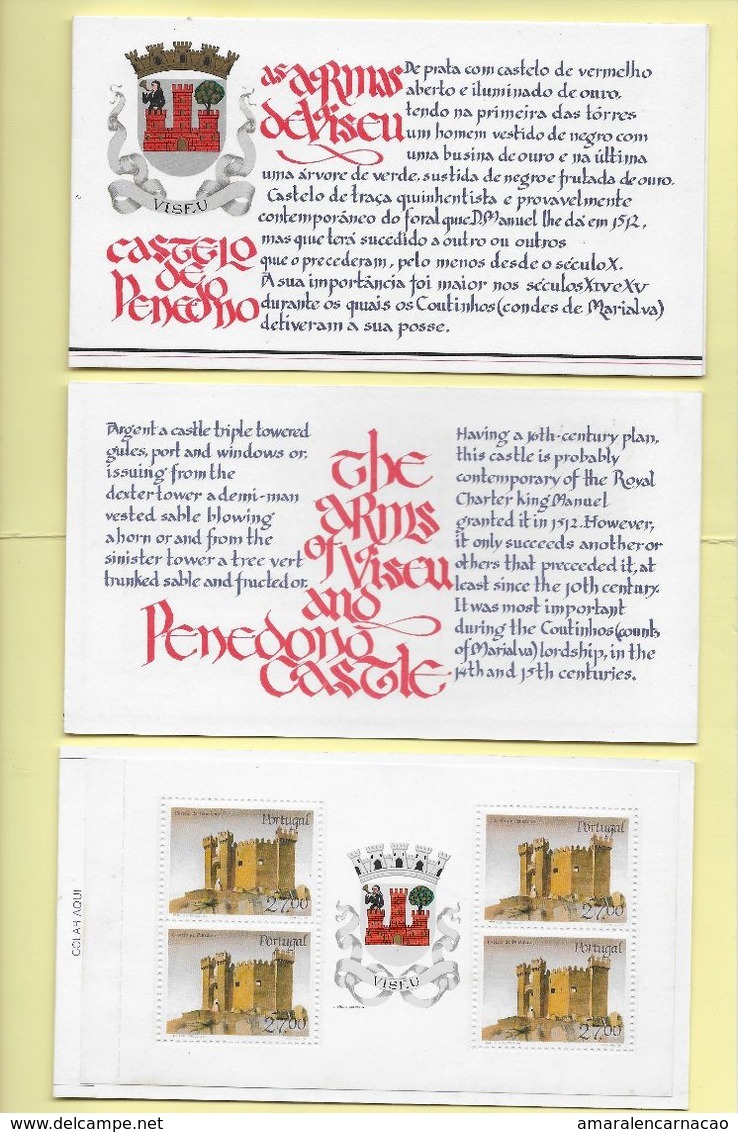 VISEU
as armas
de Viseu
De prata com castelo de vermelho
aberto e iluminado de ouro,
tendo na primeira das tôrres
um homem vestido de negro com
uma busina de ouro e na última
uma árvore de verde, sustida de negro e frutada de ouro.
Castelo de traça quinhentista e provavelmente
contemporâneo do foral que D. Manuel lhe dá em 1512,
mas que terá sucedido a outro ou outros
que o precederam, pelo menos desde o século X.
A sua importância foi maior nos séculos XIV e XV
durante os quais os Coutinhos (condes de Marialva)
detiveram a sua posse.
Castelo
de
Penedono
Argent a castle triple towered
gules, port and windows or.
issuing from the
dexter tower a demi-man
vested sable blowing
a horn or and from the
sinister tower a tree vert
trunked sable and fructed or.
The
arms
of Viseu
and
Penedono
Castle
Having a 16th-century plan,
this castle is probably
contemporary of the Royal
Charter king Manuel
granted it in 1512. However,
it only succeeds another or
others that preceeded it, at
least since the 10th century.
It was most important
during the Coutinhos (counts
of Marialva) lordship, in the
14th and 15th centuries.
COLAR AQUI
Portugal
27.00
Portugal
27.00
VISEU
Portugal
27.00
Portugal
27.00
amaralencarnacao